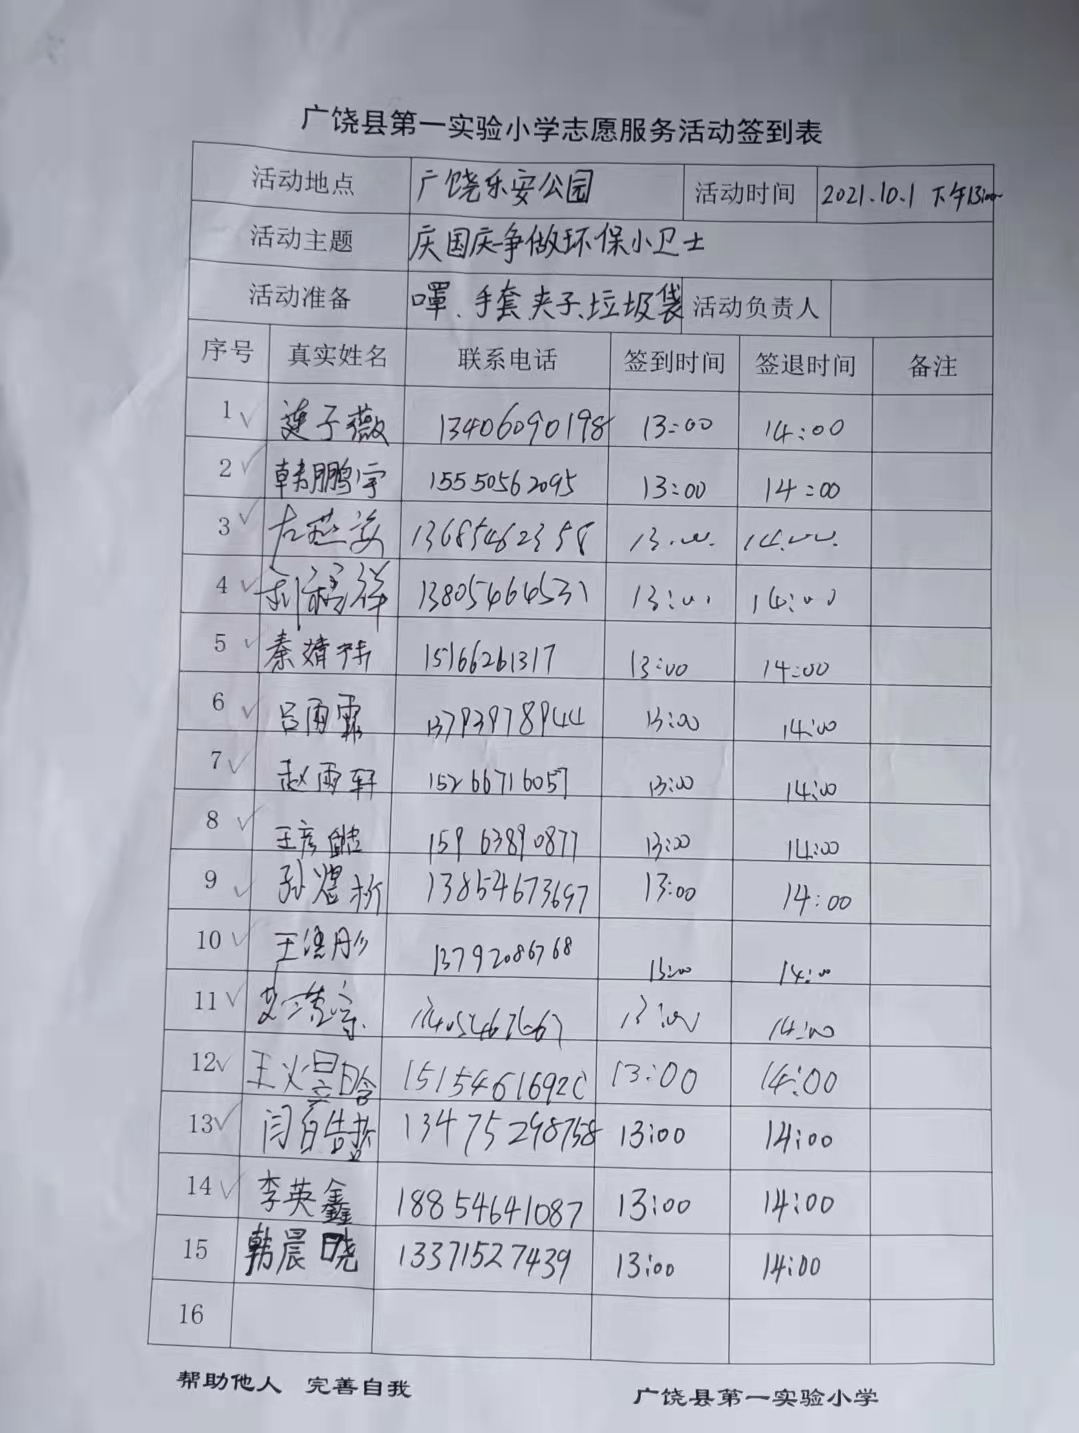 广饶县第一实验小学志愿服务活动签到表
活动地点 广饶乐安公园 活动时间 2021.10.1 下午13:00
活动主题 庆国庆争做环保小卫士
活动准备 手套 夹子 垃圾袋 活动负责人
序号 真实姓名 联系电话 签到时间 签退时间 备注
1 ✓ 子薇 13406090198 13:00 14:00
2 ✓ 韩鹏宇 15550562095 13:00 14:00
3 ✓ 13685462358 13:00 14:00
4 ✓ 祥 13805464531 13:00 14:00
5 ✓ 秦婧 15166261317 13:00 14:00
6 ✓ 吕雨霏 13793978944 13:00 14:00
7 ✓ 赵雨轩 15266716057 13:00 14:00
8 ✓ 王彦皓 15963890877 13:00 14:00
9 ✓ 孙煜 13854673697 13:00 14:00
10 ✓ 王 彤 13792086768 13:00 14:00
11 ✓ 13:00 14:00
12 ✓ 王 晗 13:00 14:00
13 ✓ 闫 13475298758 13:00 14:00
14 ✓ 李英鑫 18854641087 13:00 14:00
15 韩晨晓 13371527439 13:00 14:00
16
帮助他人 完善自我 广饶县第一实验小学